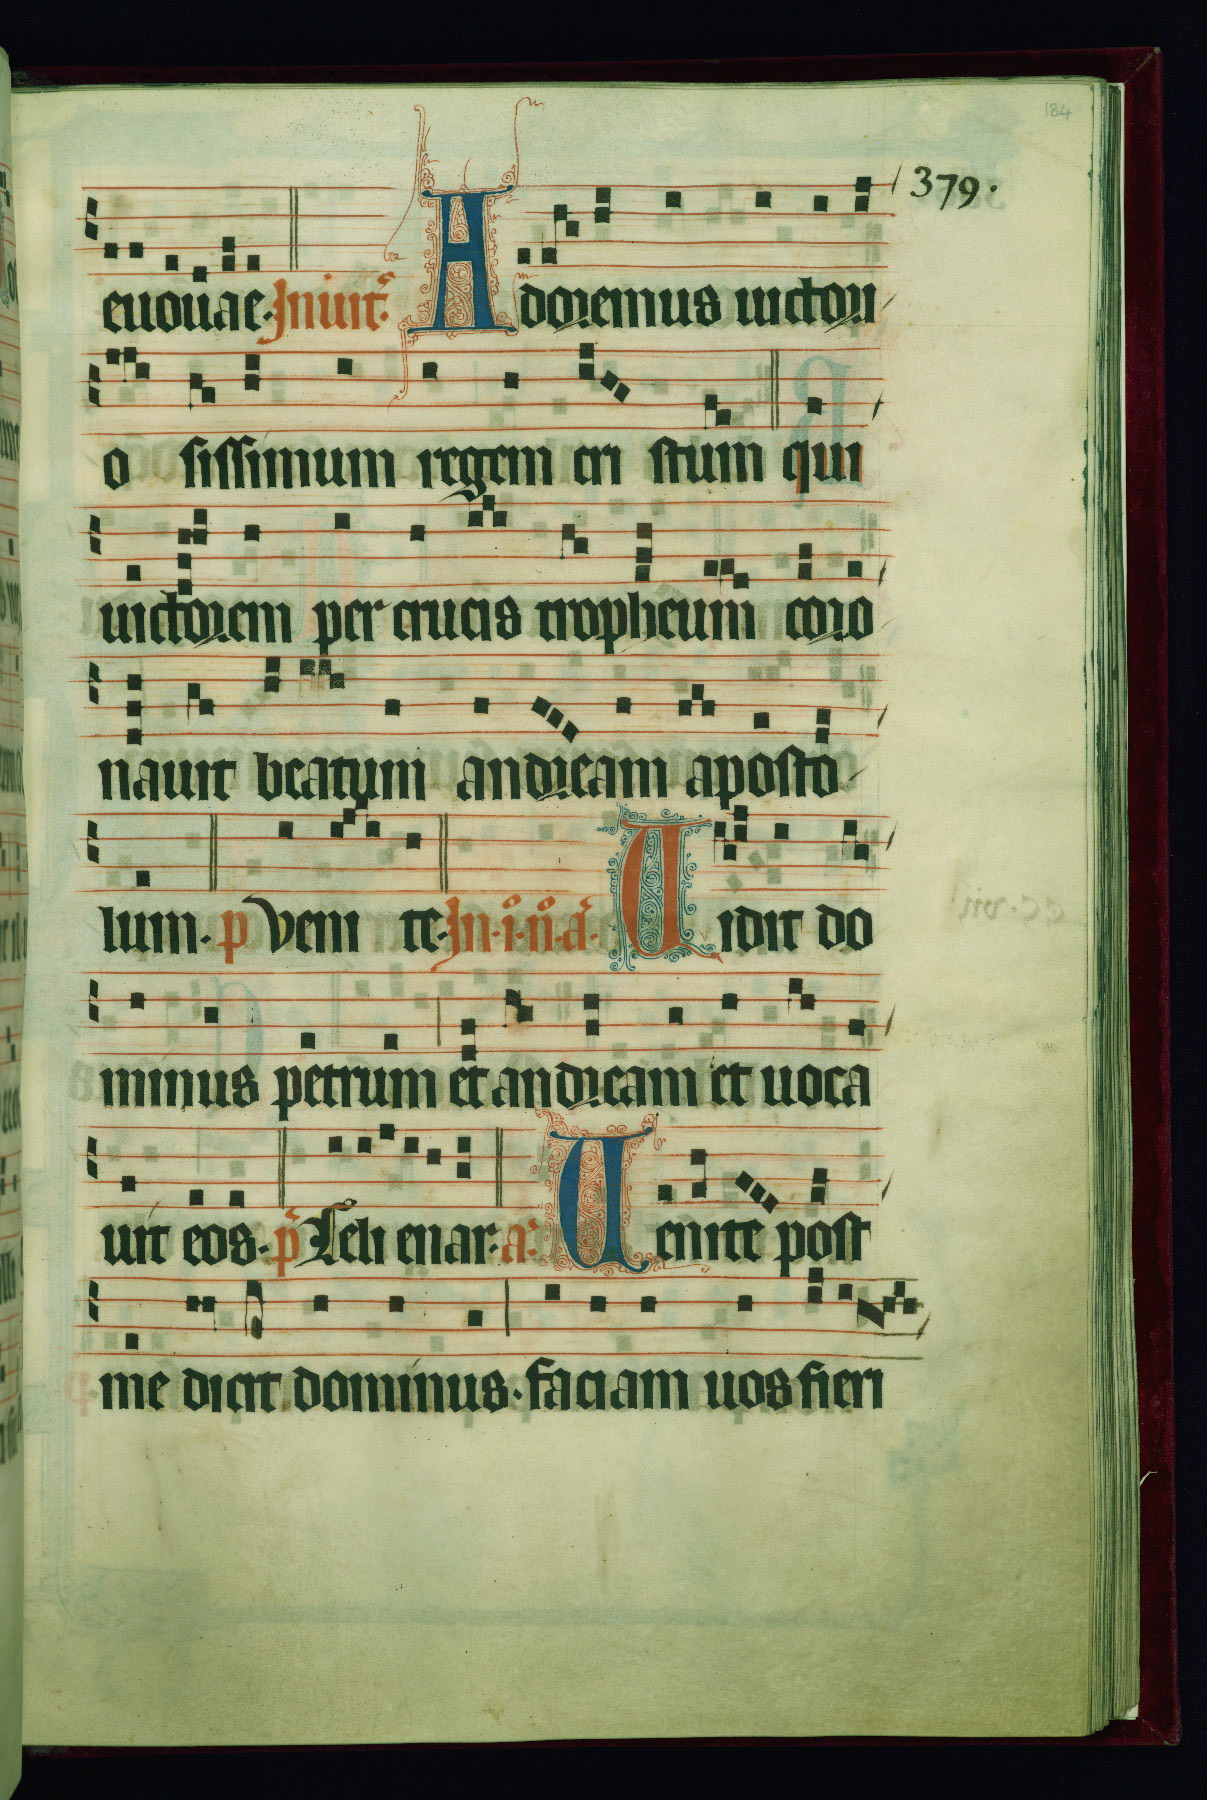 184
379.
euouae. Inuit. Adoremus uictori
o sissimum regem cri stum qui
uictorem per crucis tropheum coro
nauit beatum andream aposto
lum. p Veni te. In. i. n. a. Uidit do
minus petrum et andream et uoca
uit eos. p Celi enar. a. Uenite post
me dicit dominus. faciam uos fieri